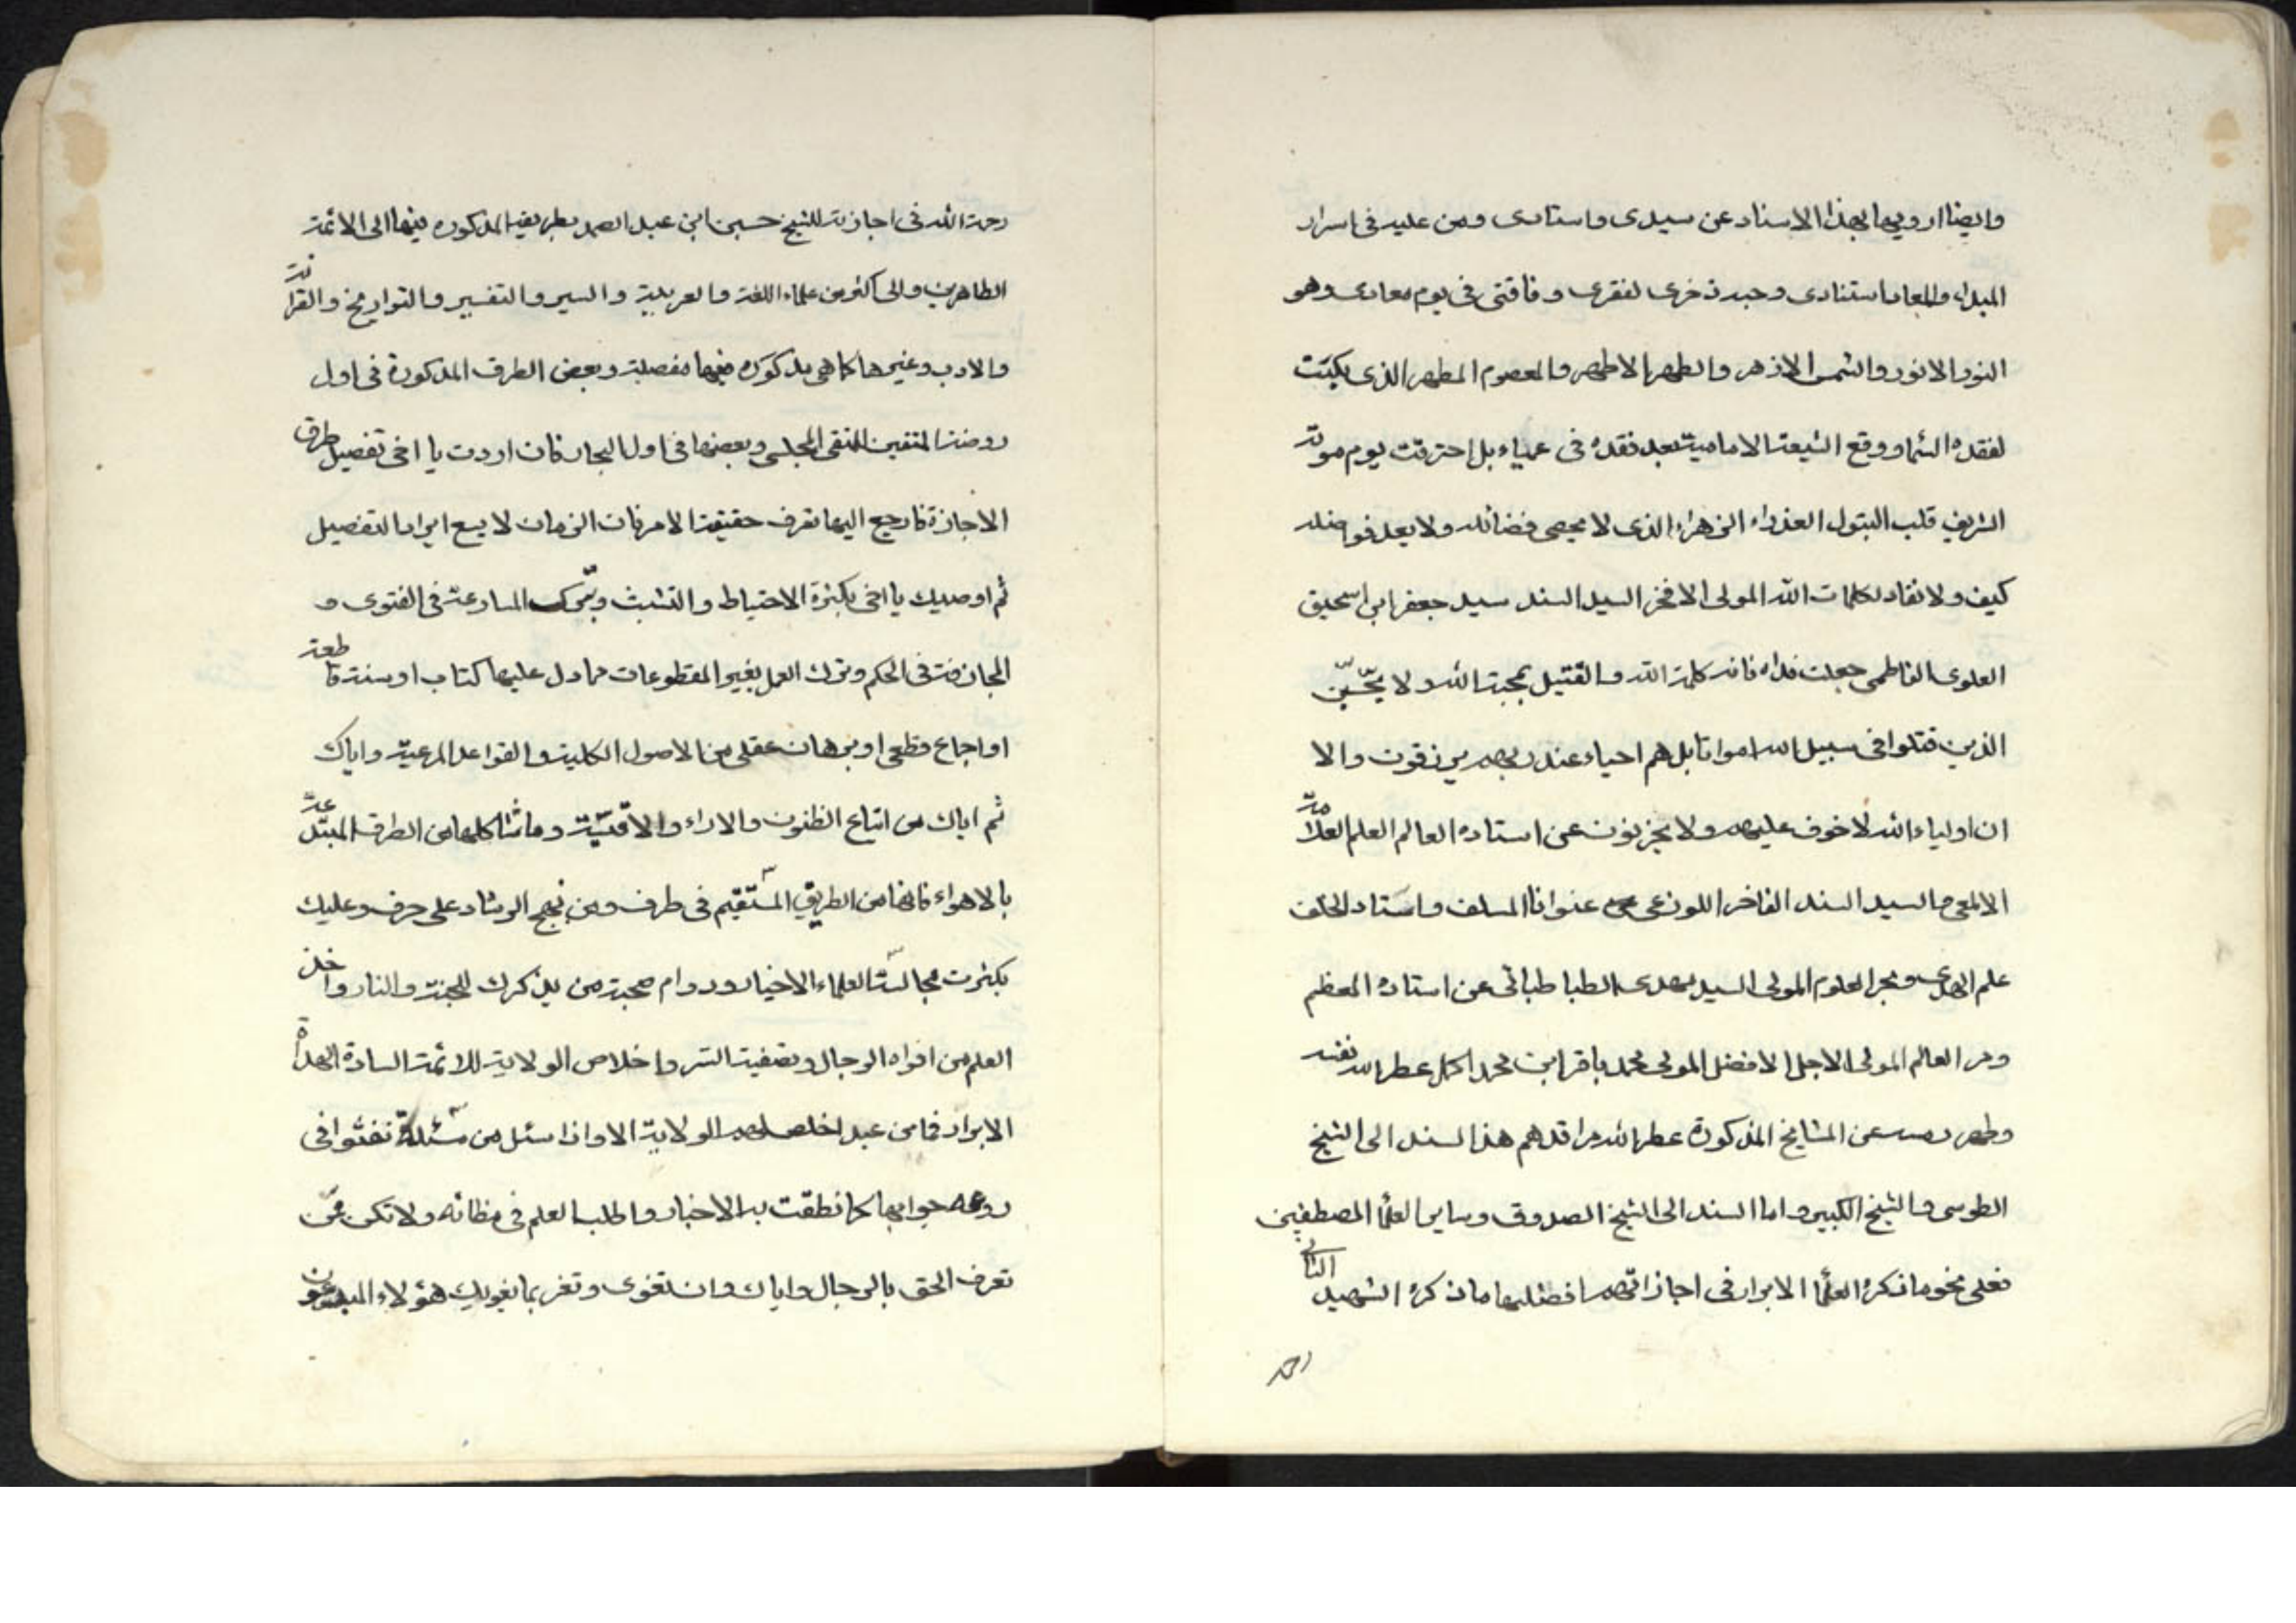 وايضا ارويها بهذا الاسناد عن سيدى واستادى ومن عليه فى اسرار
المبداء والمعاد استنادى وحبه ذخرى لفقرى وفاقتى فى يوم معادى وهو
النور الانور والشمس الازهر والطهر الاطهر والمعصوم المطهر الذى بكيت
لفقده السماء ووقع الشيعة الامامية بعد فقده فى عمياء بل احترقت يوم موته
الشريف قلب البتول العذراء الزهراء الذى لا يحصى فضائله ولا يعد فواضله
كيف ولا نفاد لكلمات الله المولى الافخر السيد السند سيد جعفر ابن اسحق
العلوى الفاطمى جعلت فداه فانه كلمة الله والقتيل بمحبة الله ولا يحسبن
الذين قتلوا فى سبيل الله امواتا بل هم احياء عند ربهم يرزقون والا
ان اولياء الله لا خوف عليهم ولا يحزنون عن استاده العالم العلم العلامة
الالمعى والسيد السند الفاخر اللوذعى عنوانا السلف واستاد الخلف
علم الهدى وبحر العلوم المولى السيد مهدى الطباطبائى عن استاده المعظم
ومر العالم المولى الاجل الافضل المولى محمد باقر ابن محمد اكمل عطر الله نفسه
وطهر رمسه عن المشايخ المذكورة عطر الله مراقدهم هذا السند الى الشيخ
الطوسى والشيخ الكبير واما السند الى الشيخ الصدوق وساير العلما المصطفين
فعلى نحو ما ذكره العلما الابرار فى اجازاتهم افضلها ما ذكره الشهيد الثانى
رحمه
رحمة الله فى اجازته للشيخ حسين ابن عبد الصمد بطريقه المذكوره فيها الى الائمة
الطاهرين والى اكثر من علماء اللغة والعربية والسير والتفسير والتواريخ والقرائة
والادب وغيرها كما هى مذكوره فيها مفصلة وبعض الطرف المذكورة فى اول
روضة المتقين للتقى المجلسى وبعضها فى اول البحار فان اردت يا اخى تفصيل طرق
الاجازة فارجع اليها تعرف حقيقة الامر فان الزمان لا يسع ايراد التفصيل
ثم اوصيك يا اخى بكثرة الاحتياط والتثبت وترك المسارعة فى الفتوى و
المجازفة فى الحكم وترك العمل بغير المقطوعات مما دل عليها كتاب او سنة قاطعة
او اجماع قطعى او برهان عقلى من الاصول الكلية والقواعد المرعية واياك
ثم اياك من اتباع الظنون والاراء والاقيسة وما شاكلها من الطرف المبتدعة
بالاهواء فانها من الطريق المستقيم فى طرف ومن نهج الرشاد على حرف وعليك
بكثرت مجالسة العلماء الاخيار ودوام صحبة من يذكرك للجنة والنار واخذ
العلم من افواه الرجال وتصفية السر واخلاص الولاية للائمة السادة الهداة
الابرار فما من عبد اخلص لهم الولاية الا واذا سئل من مسئلة نفثوا فى
روعه جوابها كما نطقت به الاخبار واطلب العلم فى مظانه ولا تكن ممن
تعرف الحق بالرجال واياك وان تغوى وتغر بما يغويك هؤلاء المبدعون